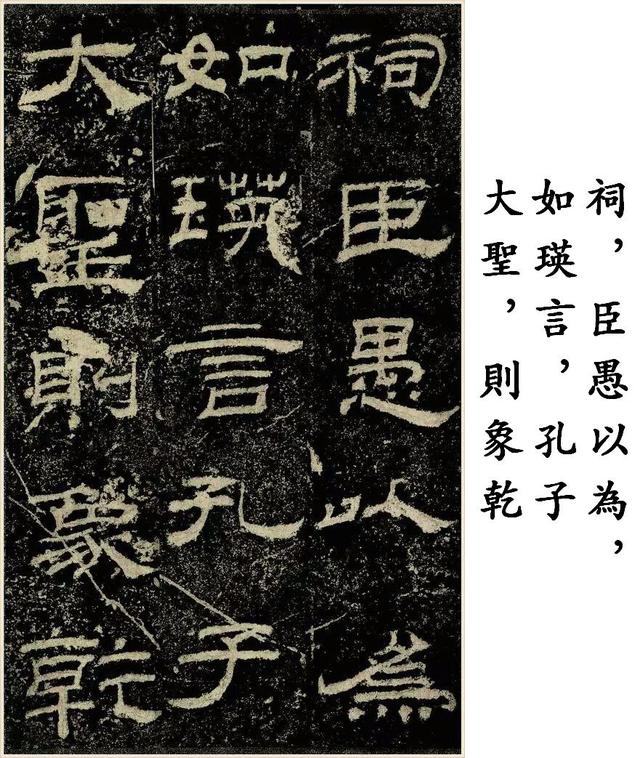 祠臣愚以為
如瑛言孔子
大聖則象乾
祠，臣愚以為，
如瑛言，孔子
大聖，則象乾